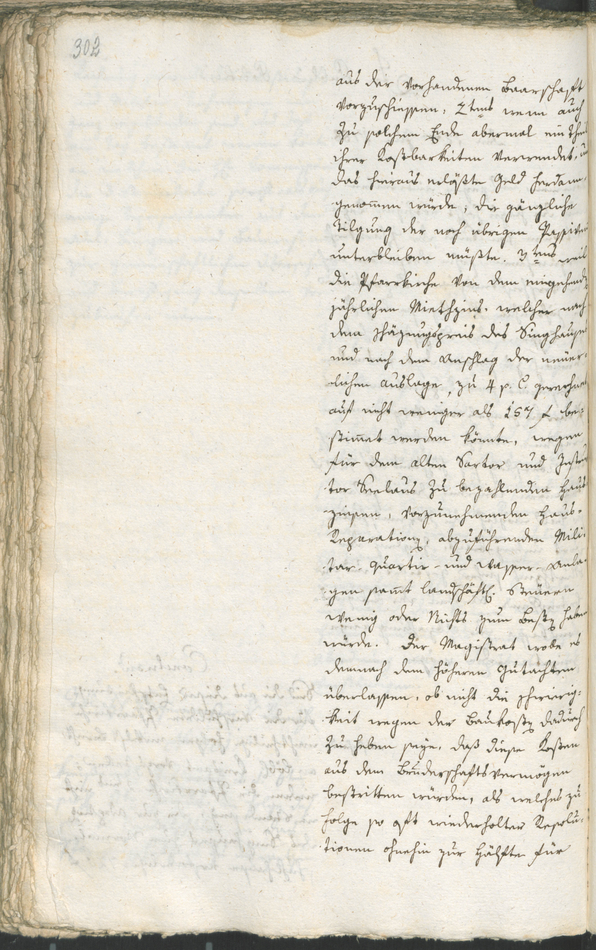 302
aus der vorhandenen Baarschafft
vorzuschiessen, 2tens wenn auch
zu solchem Ende abermal ein Theil
ihrer Kostbarkeiten verwendet, u
das hieraus erlößte Geld herdann
genommen würde, die gänzliche
Tilgung der noch übrigen Passiven
unterbleiben müßte. 3tens weil
die Pfarrkirche von dem eingehend
jährlichen Miethzins, welcher nach
dem Schäzungspreis des Singhauses
und nach dem Anschlag der neuer-
lichen Auslage, zu 4 p. C. gerechnet
auf nicht weniger als 157 f be-
stimmt werden könnte, wegen
für dem alten Sartor und
tor Seelaus zu bezahlenden Haus
zinsen, vorzunehmenden Haus-
Reparationen, abzuführenden Mili-
tar- Quartir- und Wasser- Anla-
gen sammt landschäftl. Steuern
wenig oder Nichts zum Besten haben
würde. Der Magistrat wolle es
demnach dem höheren Gutachten
überlassen, ob nicht die Schwierig-
keit wegen der Baukosten dadurch
zu heben seye, daß diese Kosten
aus dem Bruderschaftsvermögen
bestritten würden, als welches zu
Folge so oft wiederholter Resolu-
tionen ohnehin zur Hälfte für